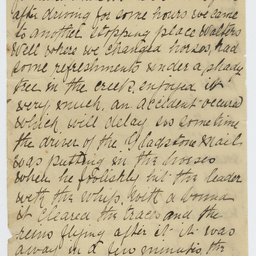 after driving for some hours we came
to another stopping place Walters
Well where we changed horses, had
some refreshments under a shady
tree in the creek, enjoyed it
very much, an accident occured
which will delay us some time
the driver of the Gladstone Mail
was putting in the horses
when he foolishly hit the leader
with the whip, with a bound
it cleared the traces and the
reins flying after it it was
away in a few minutes the